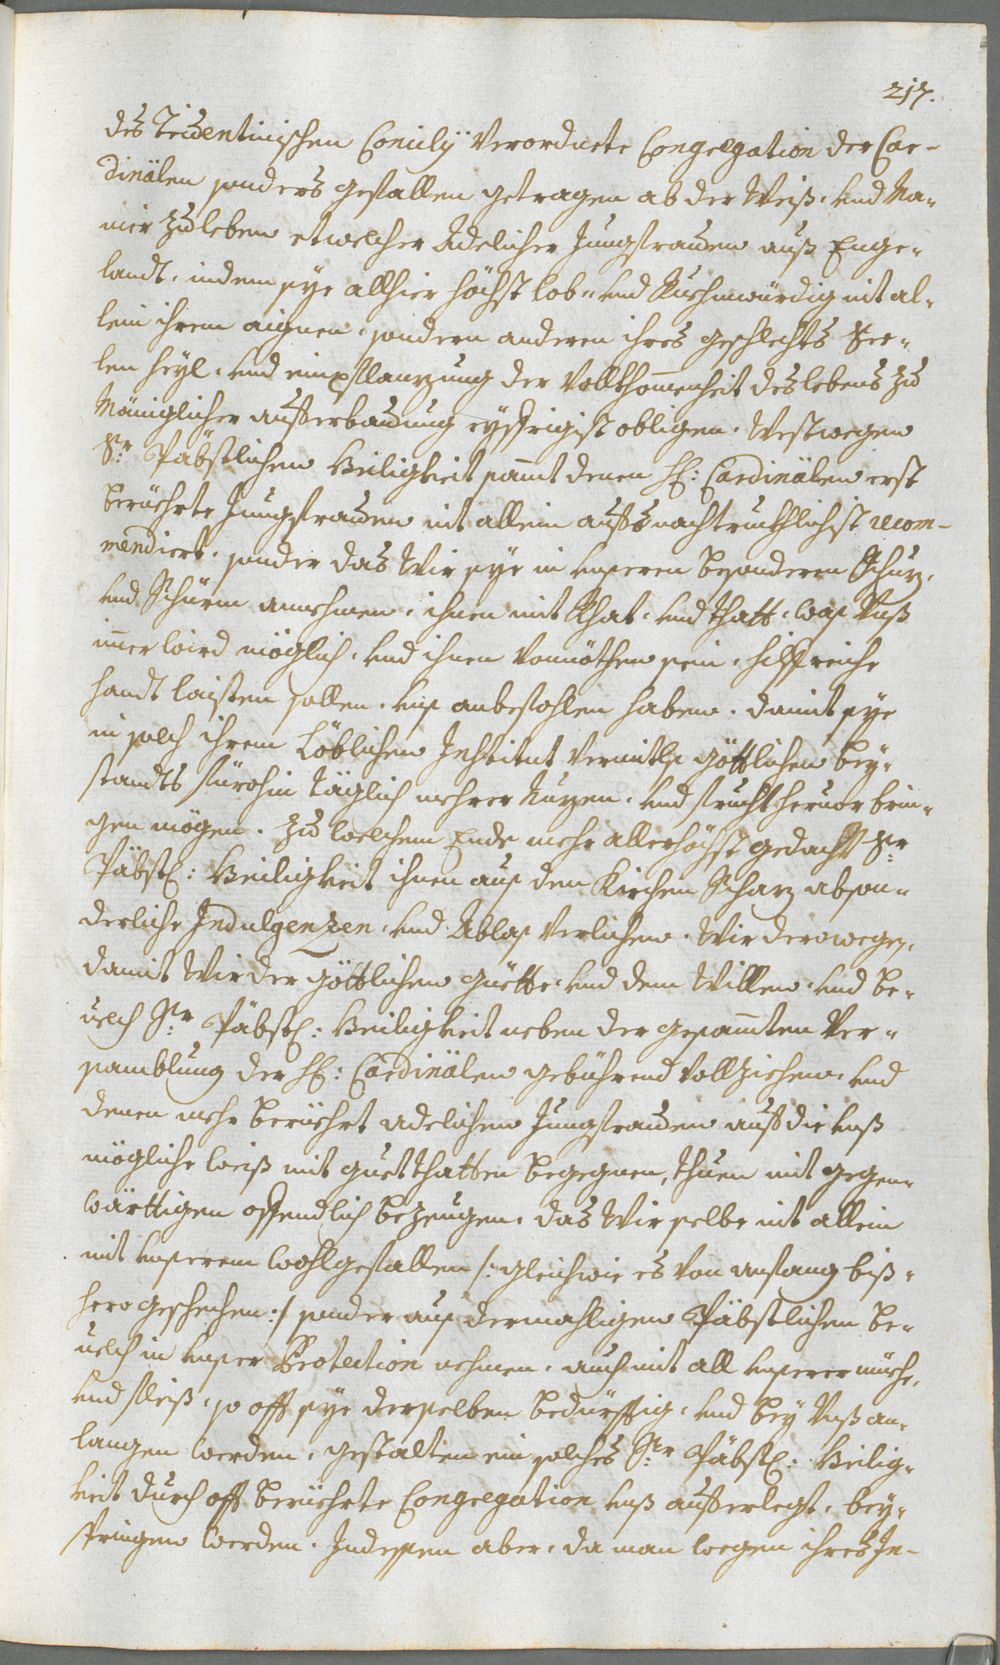 217.
des Tridentinischen Concilÿ Verordnete Congregation der Car-
dinälen sonders gefallen getragen ab der Weiß, und Ma-
nier zu leben etwelcher Adelicher Jungfrauen auß Enge-
landt, indem sye allhier höchst lob- und Ruhmwürdig nit al-
lein ihrem aignen, sondern anderen ihres geschlechts See-
len heyl, und einpflanzung der Vollkhomenheit des lebens zu
Mäniglicher aufferbauung eyffrigist obligen. Westwegen
Sr. Päbstlichen Heiligkeit samt denen HH: Cardinälen erst
berüehrte Jungfrauen nit allein auffs nachtruckhlichist recom-
mendiert, sonder das Wir sye in unseren besonderen Schuz,
und Schürm annehmen, ihnen mit Rhat, und thatt, was Unß
imer wird möglich, und ihnen vonnöthen sein, hilffreiche
handt laisten sollen, uns anbefohlen haben, damit sye
in solch ihrem Löblichen Institut vermitls göttlichen bey-
standts fürohin täglich mehrer Nuzen, und frucht hervor brin-
gen mögen. Zu welchem Ende mehr allerhöchst gedacht Sr.
Päbstl: Heiligkeit ihnen aus dem Kirchen Schaz abson-
derliche Indulgenzen, und Ablas verlichen. Wir derowegen,
damit Wir der göttlichen güette, und dem Willen, und be-
velch Ir. Päbstl: Heiligkeit neben der gesamten Ver-
samblung der HH: Cardinälen gebührend vollziehen, und
denen mehr berüehrt adelichen Jungfrauen auff die unß
mögliche weiß mit guetthatten begegnen, thuen mit gegen-
wärttigen offendlich bezeugen, das Wir selbe nit allein
mit unserem wohlgefallen /: gleichwie es von anfang biß-
hero geschechen :/ sonder aus dermahligen Päbstlichen be-
velch in unser Protection nehmen, auch mit all unserer müehe,
und fleiß, so offt sye derselben bedürfftig, und bey Unß an-
langen werden, gestalten ein solches Ir. Päbstl: Heilig-
keit durch offt berüehrte Congregation unß aufferlegt, bey-
springen werden. Indessen aber, da man wegen ihres In-